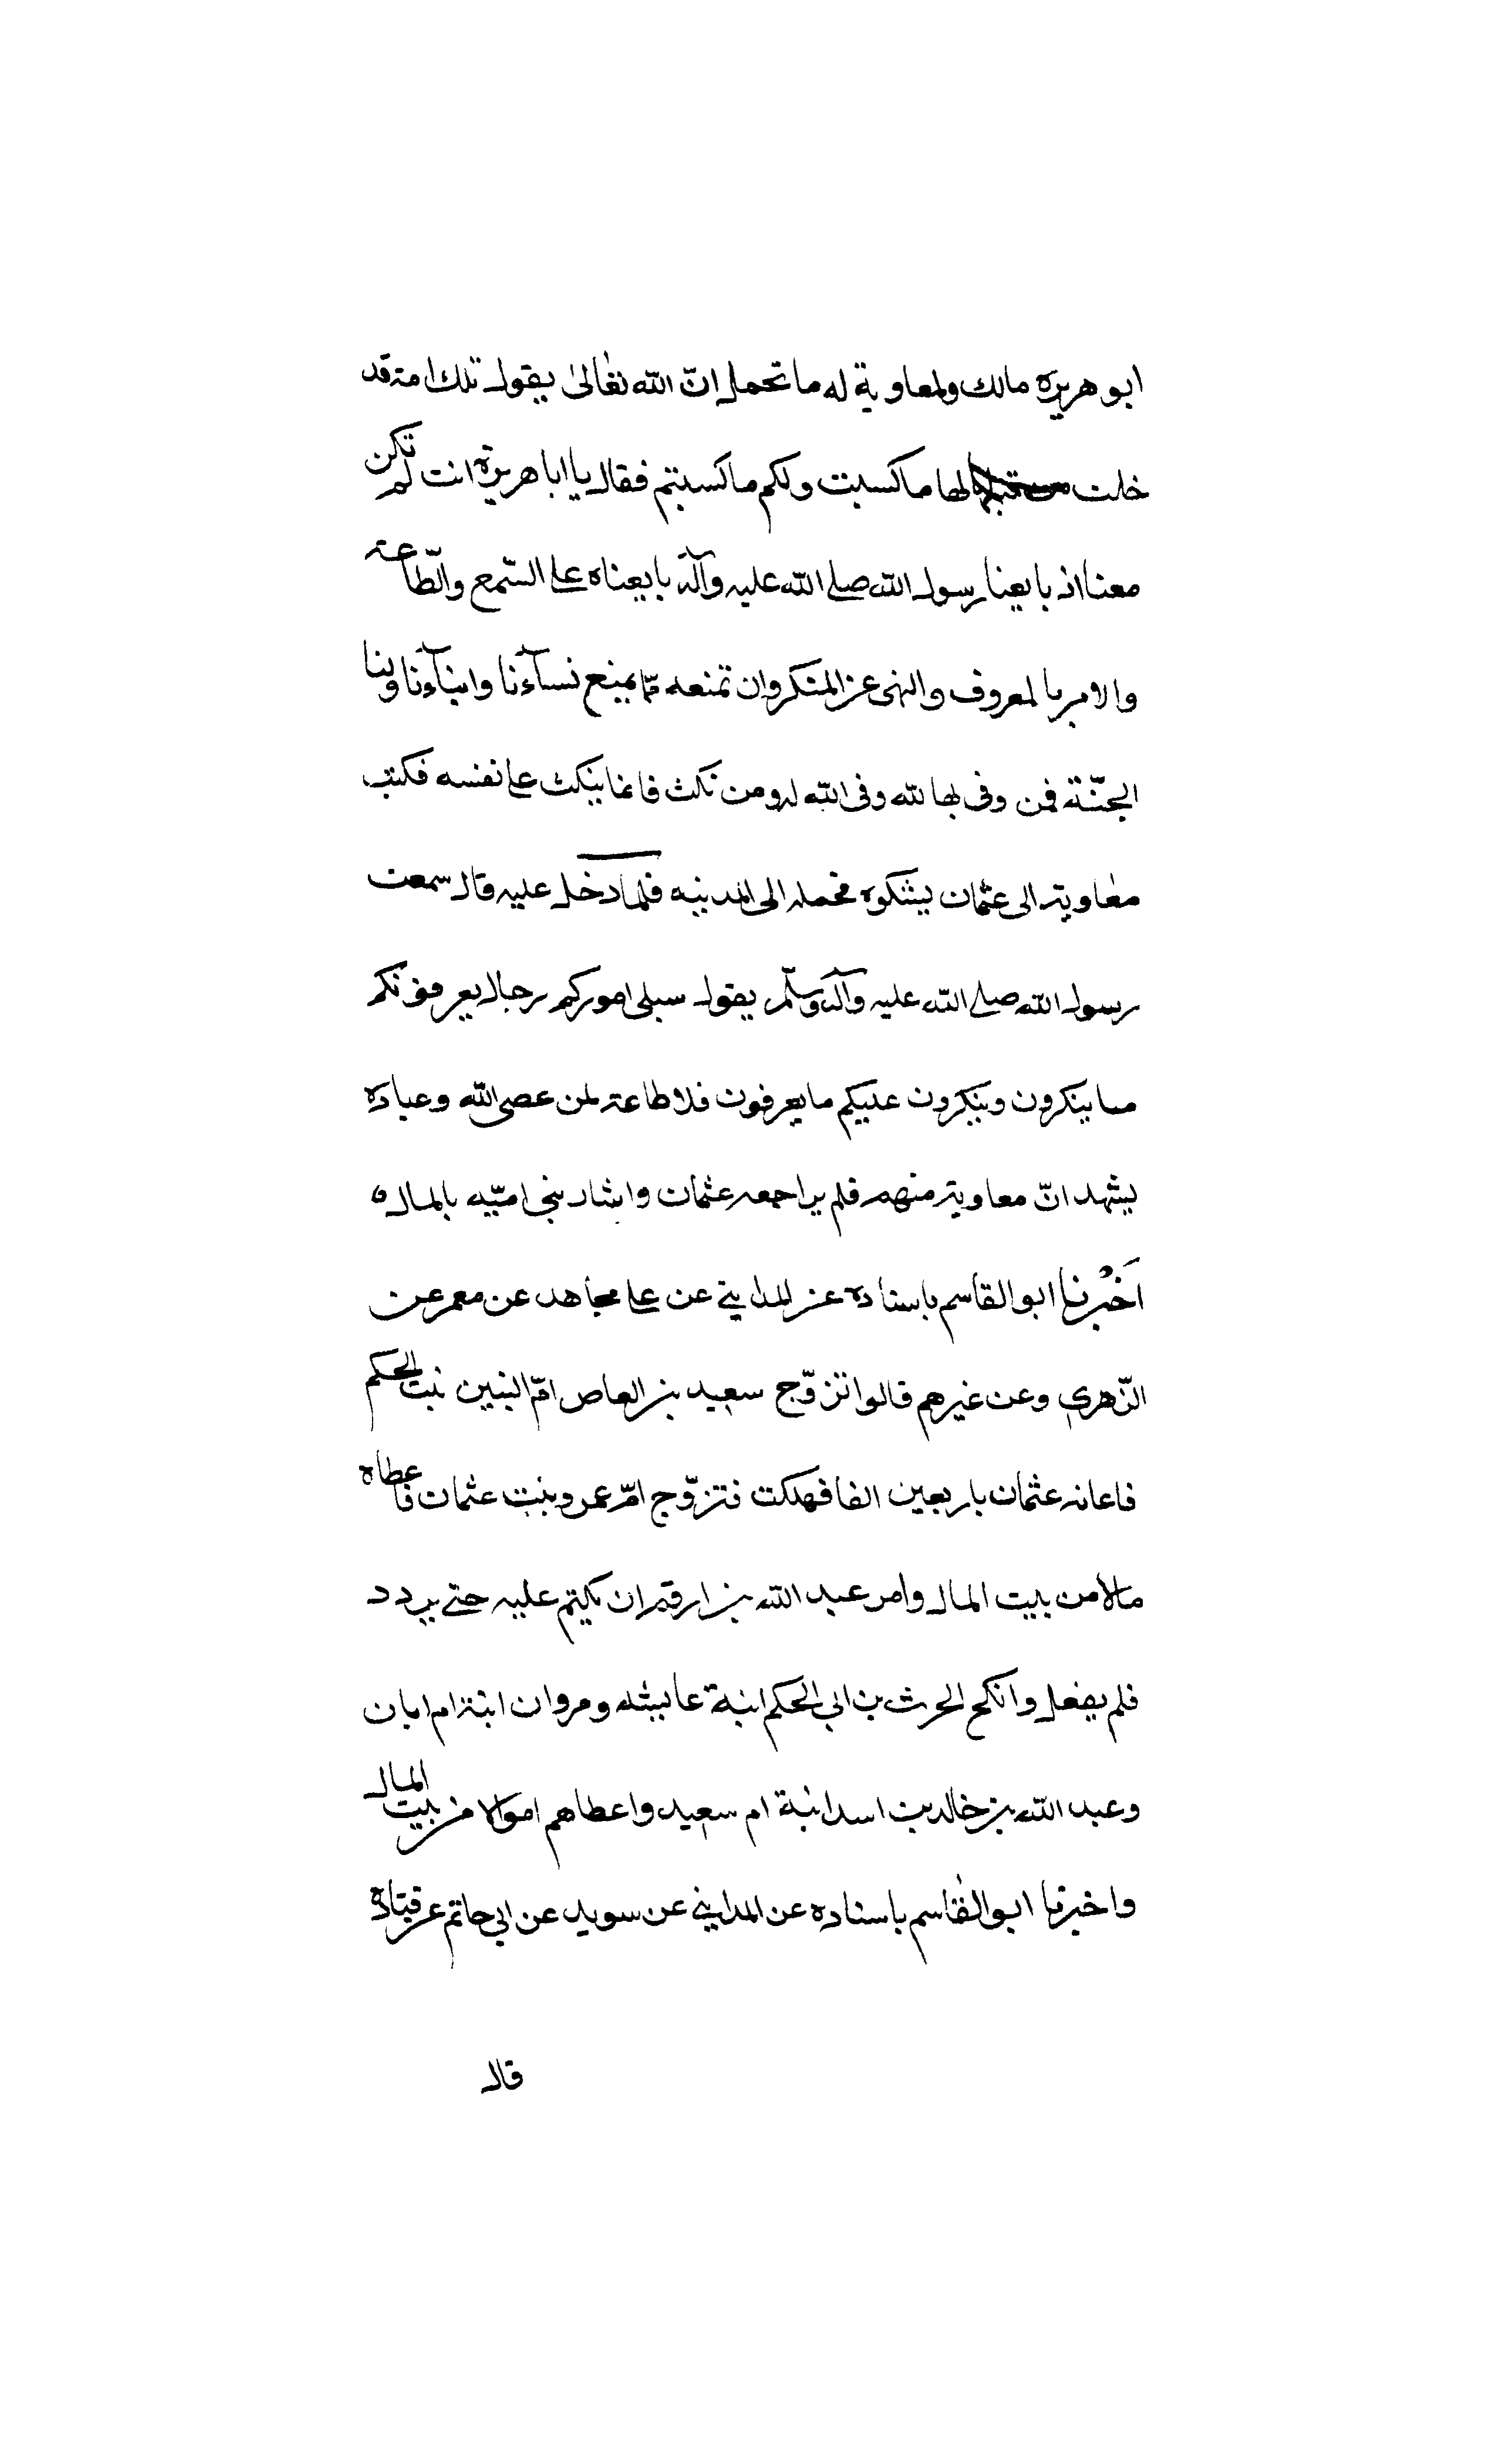 ابو هريره مالك ولمعاوية له ما تحمل انّ الله تعالى يقول تلك امة قد
خلت لها ما كسبت ولكم ما كسبتم فقال يا ابا هريرة انت لم تكن
معنا اذ بايعنا رسول الله صلى الله عليه وآله بايعناه على السّمع والطّاعة
والامر بالمعروف والنهى عن المنكر وان نمنعه ممّا يمنع نسآءنا وابنآءنا ولنا
الجنّة فمن وفى لها لله وفى الله له ومن نكث فانما ينكث على نفسه فكتب
معاوية الى عثمان يشكوه فحمله الى المدينه فلما دخل عليه قال سمعت
رسول الله صلى الله عليه وآله وسلّم يقول سيلى اموركم رجال يعرفونكم
ما ينكرون وينكرون عليكم ما يعرفون فلا طاعة لمن عصى الله وعباده
يشهد انّ معاوية منهم فلم يراجعه عثمان واشار بنى اميّه بالمال ه
اَخْبرنا ابو القاسم باسناده عن المداينى عن على مجاهد عن معمر عن
الزّهرى وعن غيرهم قالوا تزوّج سعيد بن العاص امّ البنين بنت الحكم
فاعانه عثمان باربعين الفا فهلكت فتزوّج امّ عمرو بنت عثمان فاعطاه
مالا من بيت المال وامر عبد الله بن ارقم ان يكتم عليه حتى يردد
فلم يفعل وانكح الحرث بن ابى الحكم ابنة عايشه ومروان ابنة ام ابان
وعبد الله بن خالد بن اسد ابنة ام سعيد واعطاهم اموالا من بيت المال
واخبرنا ابو القاسم باسناده عن المداينى عن سويد عن ابى حاتم عن قتاده
قال